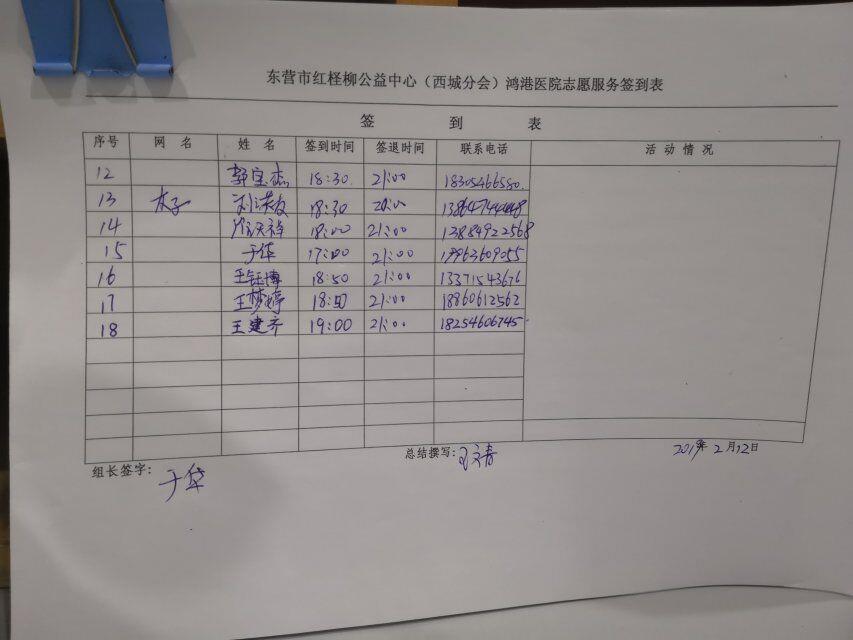 东营市红柽柳公益中心（西城分会）鸿港医院志愿服务签到表
签 到 表
序号 网 名 姓 名 签到时间 签退时间 联系电话 活 动 情 况
12 郭宝杰 18:30 21:00 18305466580
13 18:30 20:00
14 18:00 21:00 13884922568
15 于华 17:00 21:00
16 王钰博 18:50 21:00 13371543676
17 王梦婷 18:50 21:00 18860612562
18 王建齐 19:00 21:00 18254606745
组长签字： 于华 总结撰写： 2019年 2 月12日